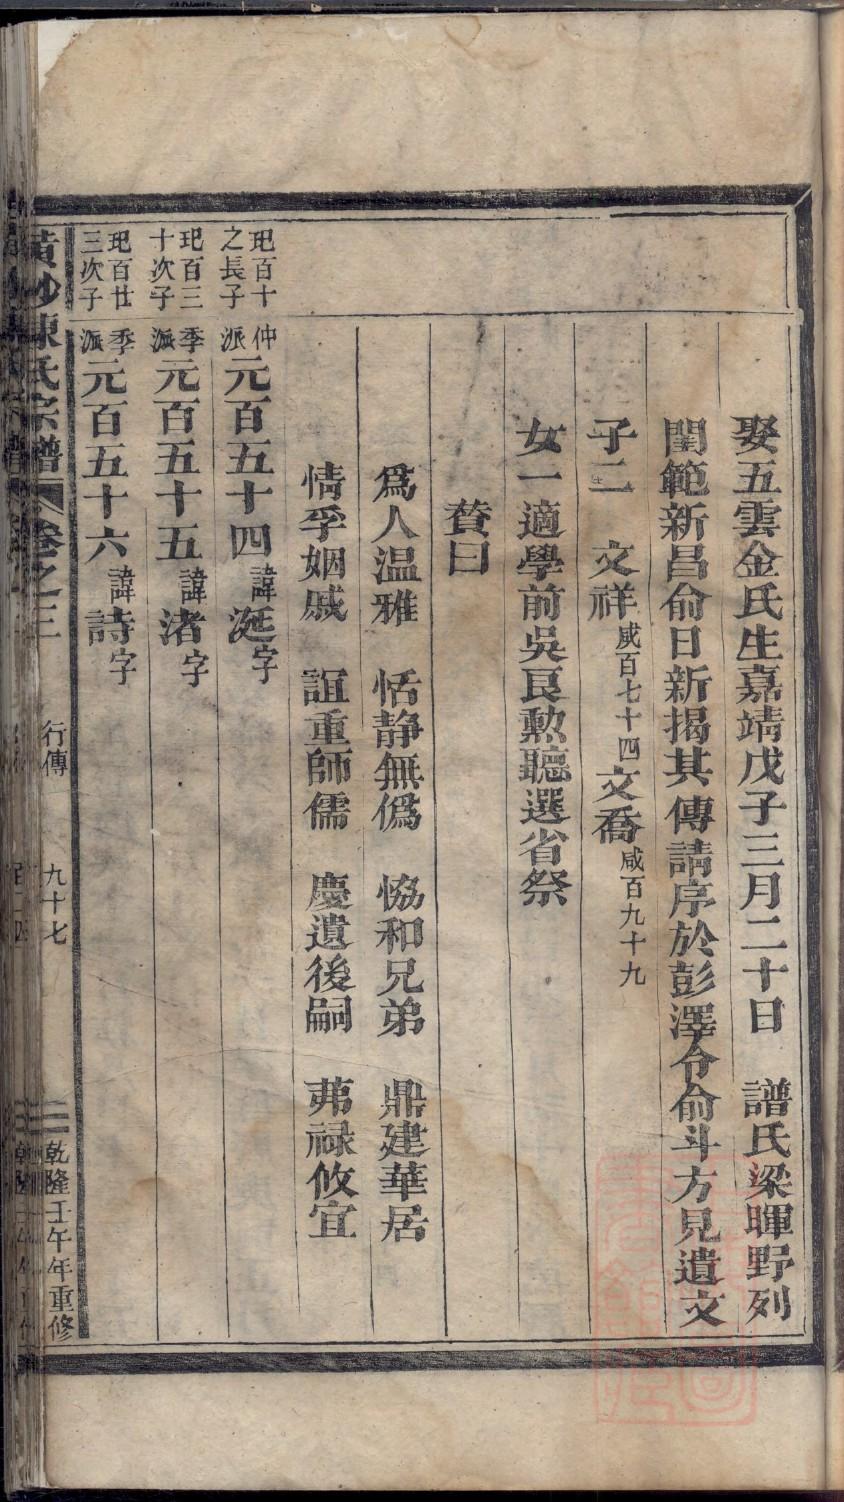 娶五雲金氏生嘉靖戊子三月二十日　譜氏梁暉野列
閨範新昌俞日新揭其傳請序於彭澤令俞斗方見遺文
子二　文祥咸百七十四文喬咸百九十九
女一適學前吳良勲聽選省祭
賛曰
為人温雅　恬静無僞　恊和兄弟　鼎建華居
情孚姻戚　誼重師儒　慶遺後嗣　茀禄攸宜
玘百十之長子
仲派元百五十四諱涎字
玘百三十次子
季派元百五十五諱渚字
玘百廿三次子
季派元百五十六諱詩字
黃沙陳氏宗譜　卷之三　行傳　九十七　乾隆壬午年重修